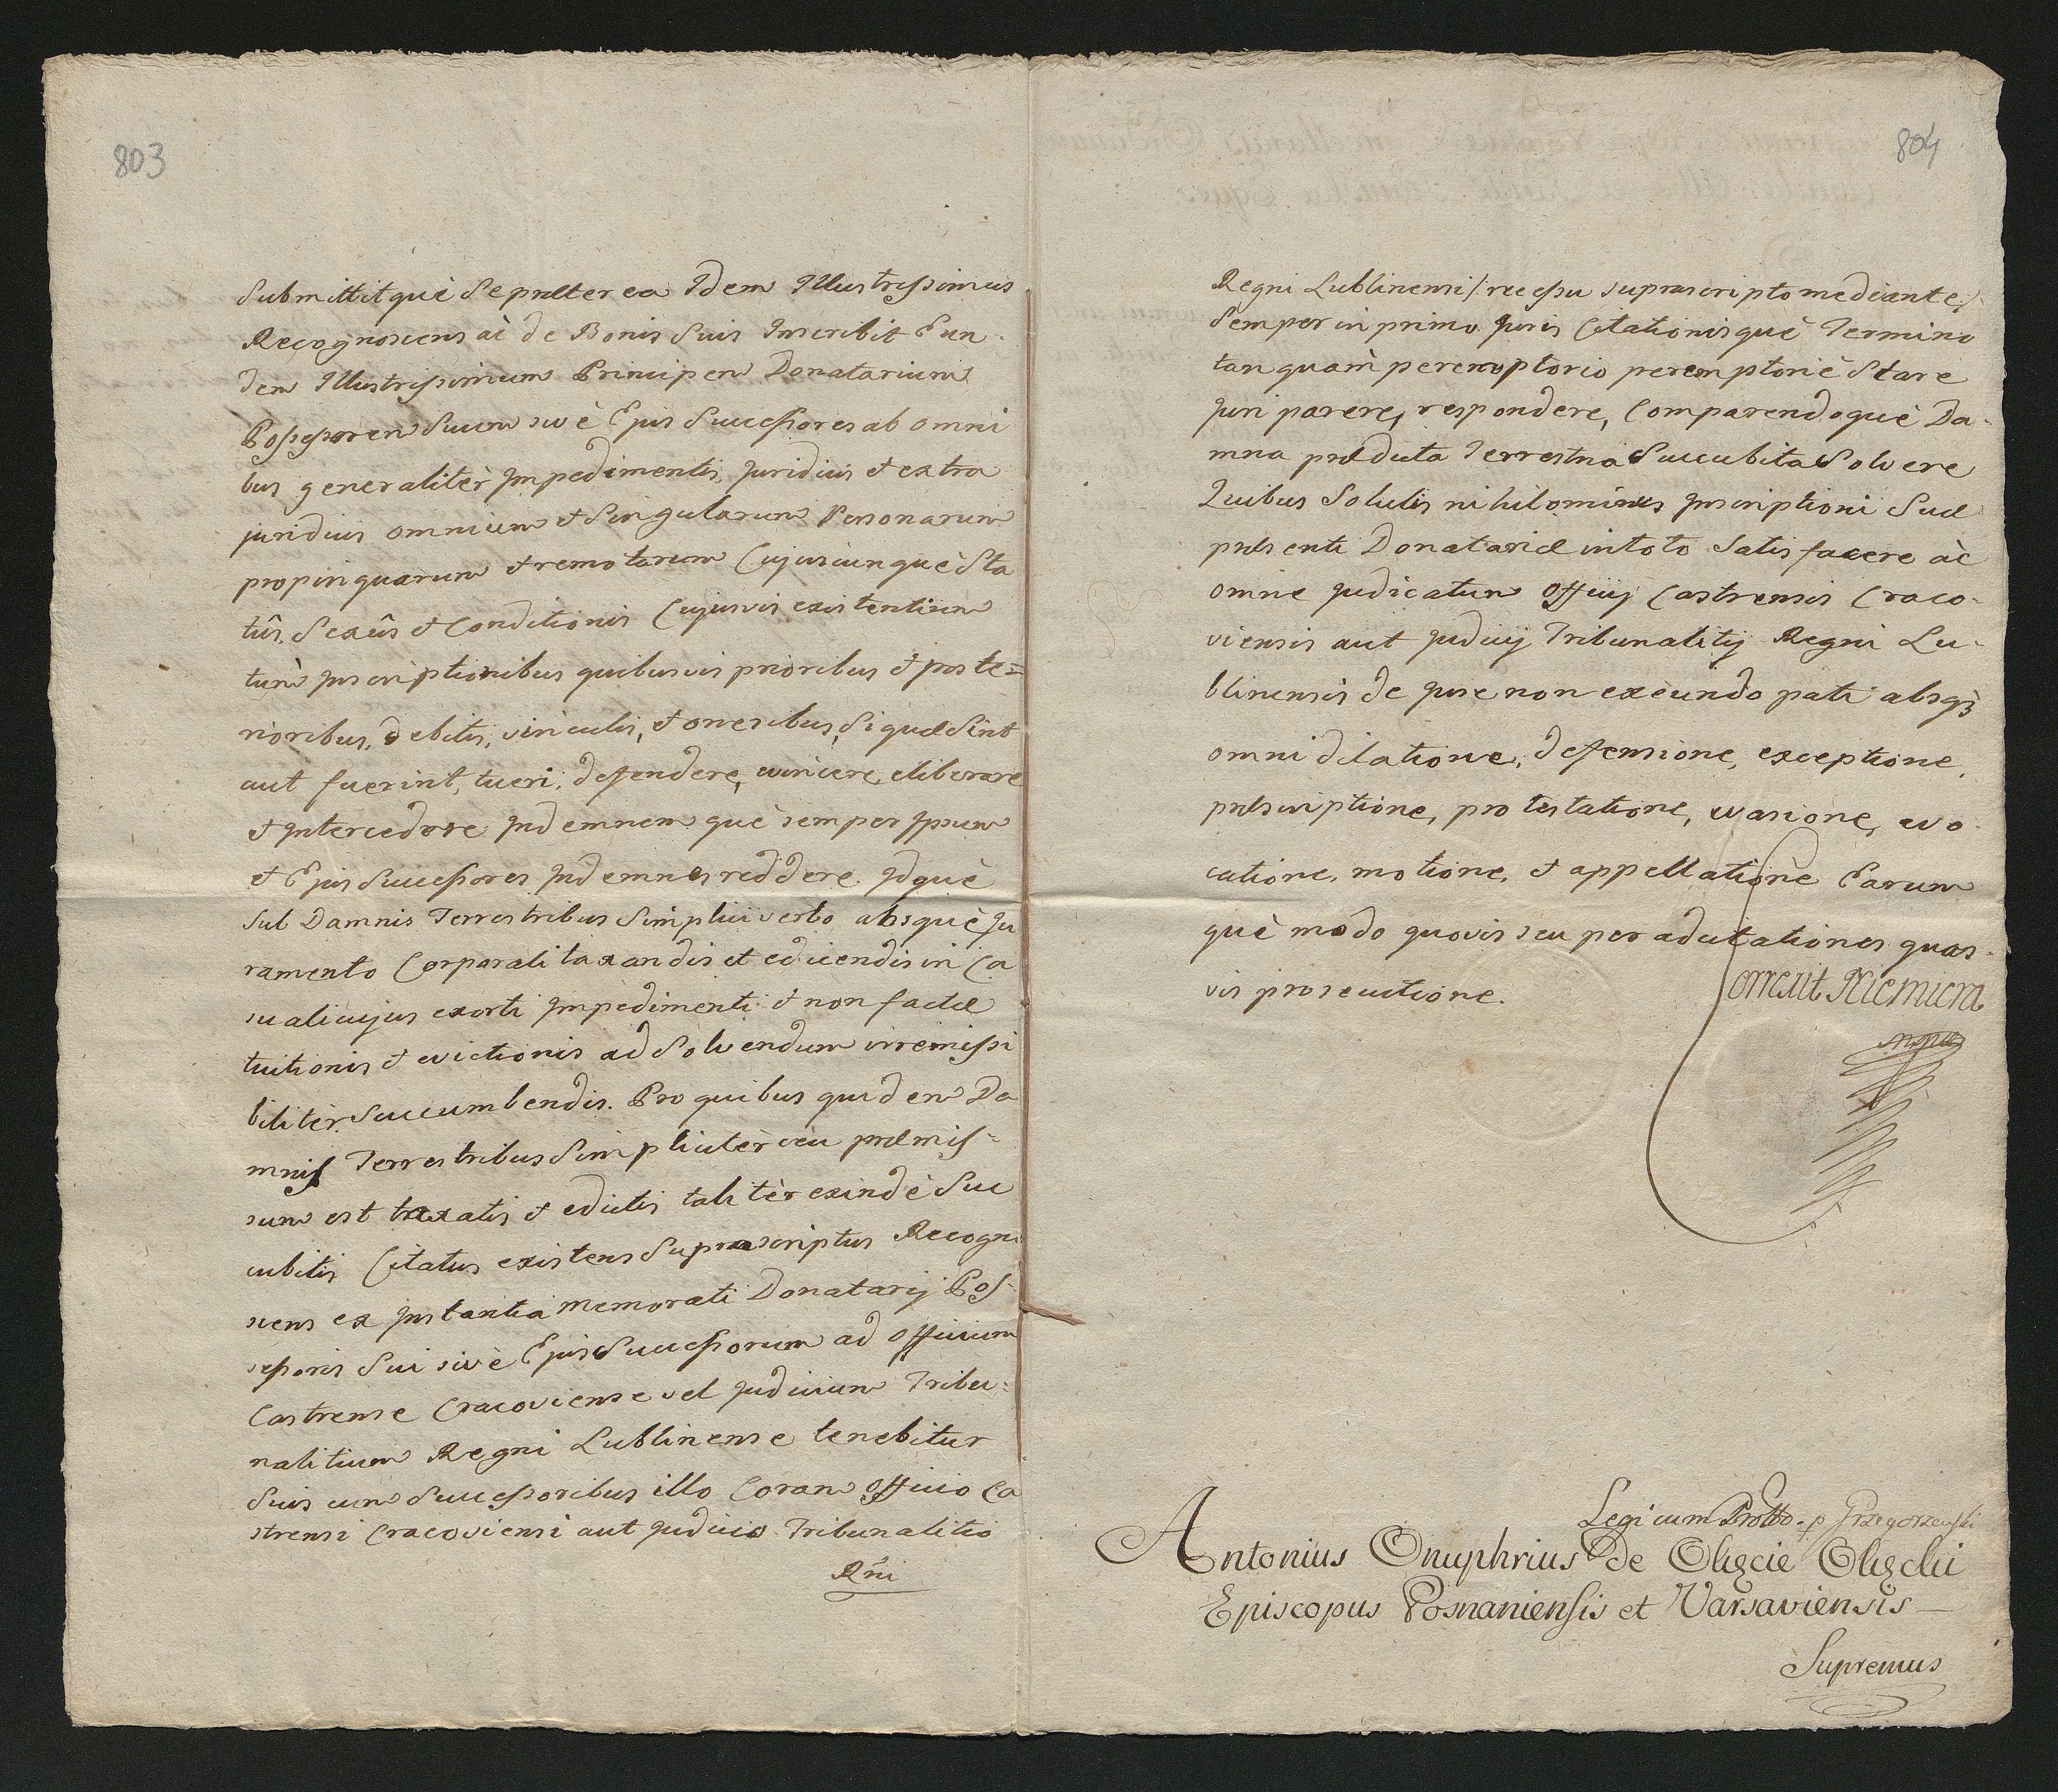 803
Submittitquè se præterea Idem Illustrissimus
Recognoscens ac de Bonis Suis Inscribit Eun-
dem Illustrissimum Principem Donatarium
Possessorem Suum sivè Ejus Successores ab omni
bus generalitèr Impedimentis, Juridicis et extra
juridicis omnium et Singularum Personarum
propinquarum et remotarum Cujuscunquè Sta
tûs, Sexûs et Conditionis Cujusvis existentium
tùm Inscriptionibus quibusvis prioribus et poste=
rioribus, debitis, vinculis, et oneribus, si quæ Sint
aut fuerint, tueri, defendere, evincere, eliberare
et Intercedere Indemnem què semper Ipsum
et Ejus Successores Indemnes reddere. Idquè
Sub Damnis Terrestribus Simplici verbo absquè Ju
ramento Corporali taxandis et edicendis in Ca
su alicujus exorti Impedimenti et non factæ
tuitionis et evictionis ad Solvendum irremissi
bilitèr Succumbendis. Pro quibus quidem Da
mnis Terrestribus Simplicitèr ceu præmis=
sum est taxatis et edictis talitèr exindè Suc
cubitis Citatus existens Suprascriptus Recogno
scens ex Instantia memorati Donatarij Pos-
sessoris Sui sivè Ejus Successorum ad Officium
Castrense Cracoviense vel Judicium Tribu=
nalitium Regni Lublinense tenebitur
Suis cum Successoribus illo Coram Officio Ca
strensi Cracoviensi aut Judicio Tribunalitio
Rñi
804
Regni Lublinensi /: recessu suprascripto mediante :/
Semper in primo Juris Citationisquè Termino
tanquam peremptorio peremptoriè Stare
Juri parere, respondere, Comparendoquè Da-
mna prædicta Terrestria Succubita Solvere
Quibus Solutis nihilominus Inscriptioni Suæ
præsenti Donatariæ in toto Satisfacere àc
omne Judicatum Officij Castrensis Craco-
viensis aut Judicij Tribunalitij Regni Lu-
blinensis de Jure non exeundo pati absq3
omni dilatione, defensione, exceptione,
præscriptione, protestatione, evasione, evo-
catione, motione, et appellatione Earum
què modo quovis seu per adcitationes quas-
vis prosecutione.
Correxit Niemiera
mpia
Legi cum Protho. p Grzegorzewski
Antonius Onuphrius de Okęcie Okęcki
Episcopus Posnaniensis et Varsaviensis
Supremus